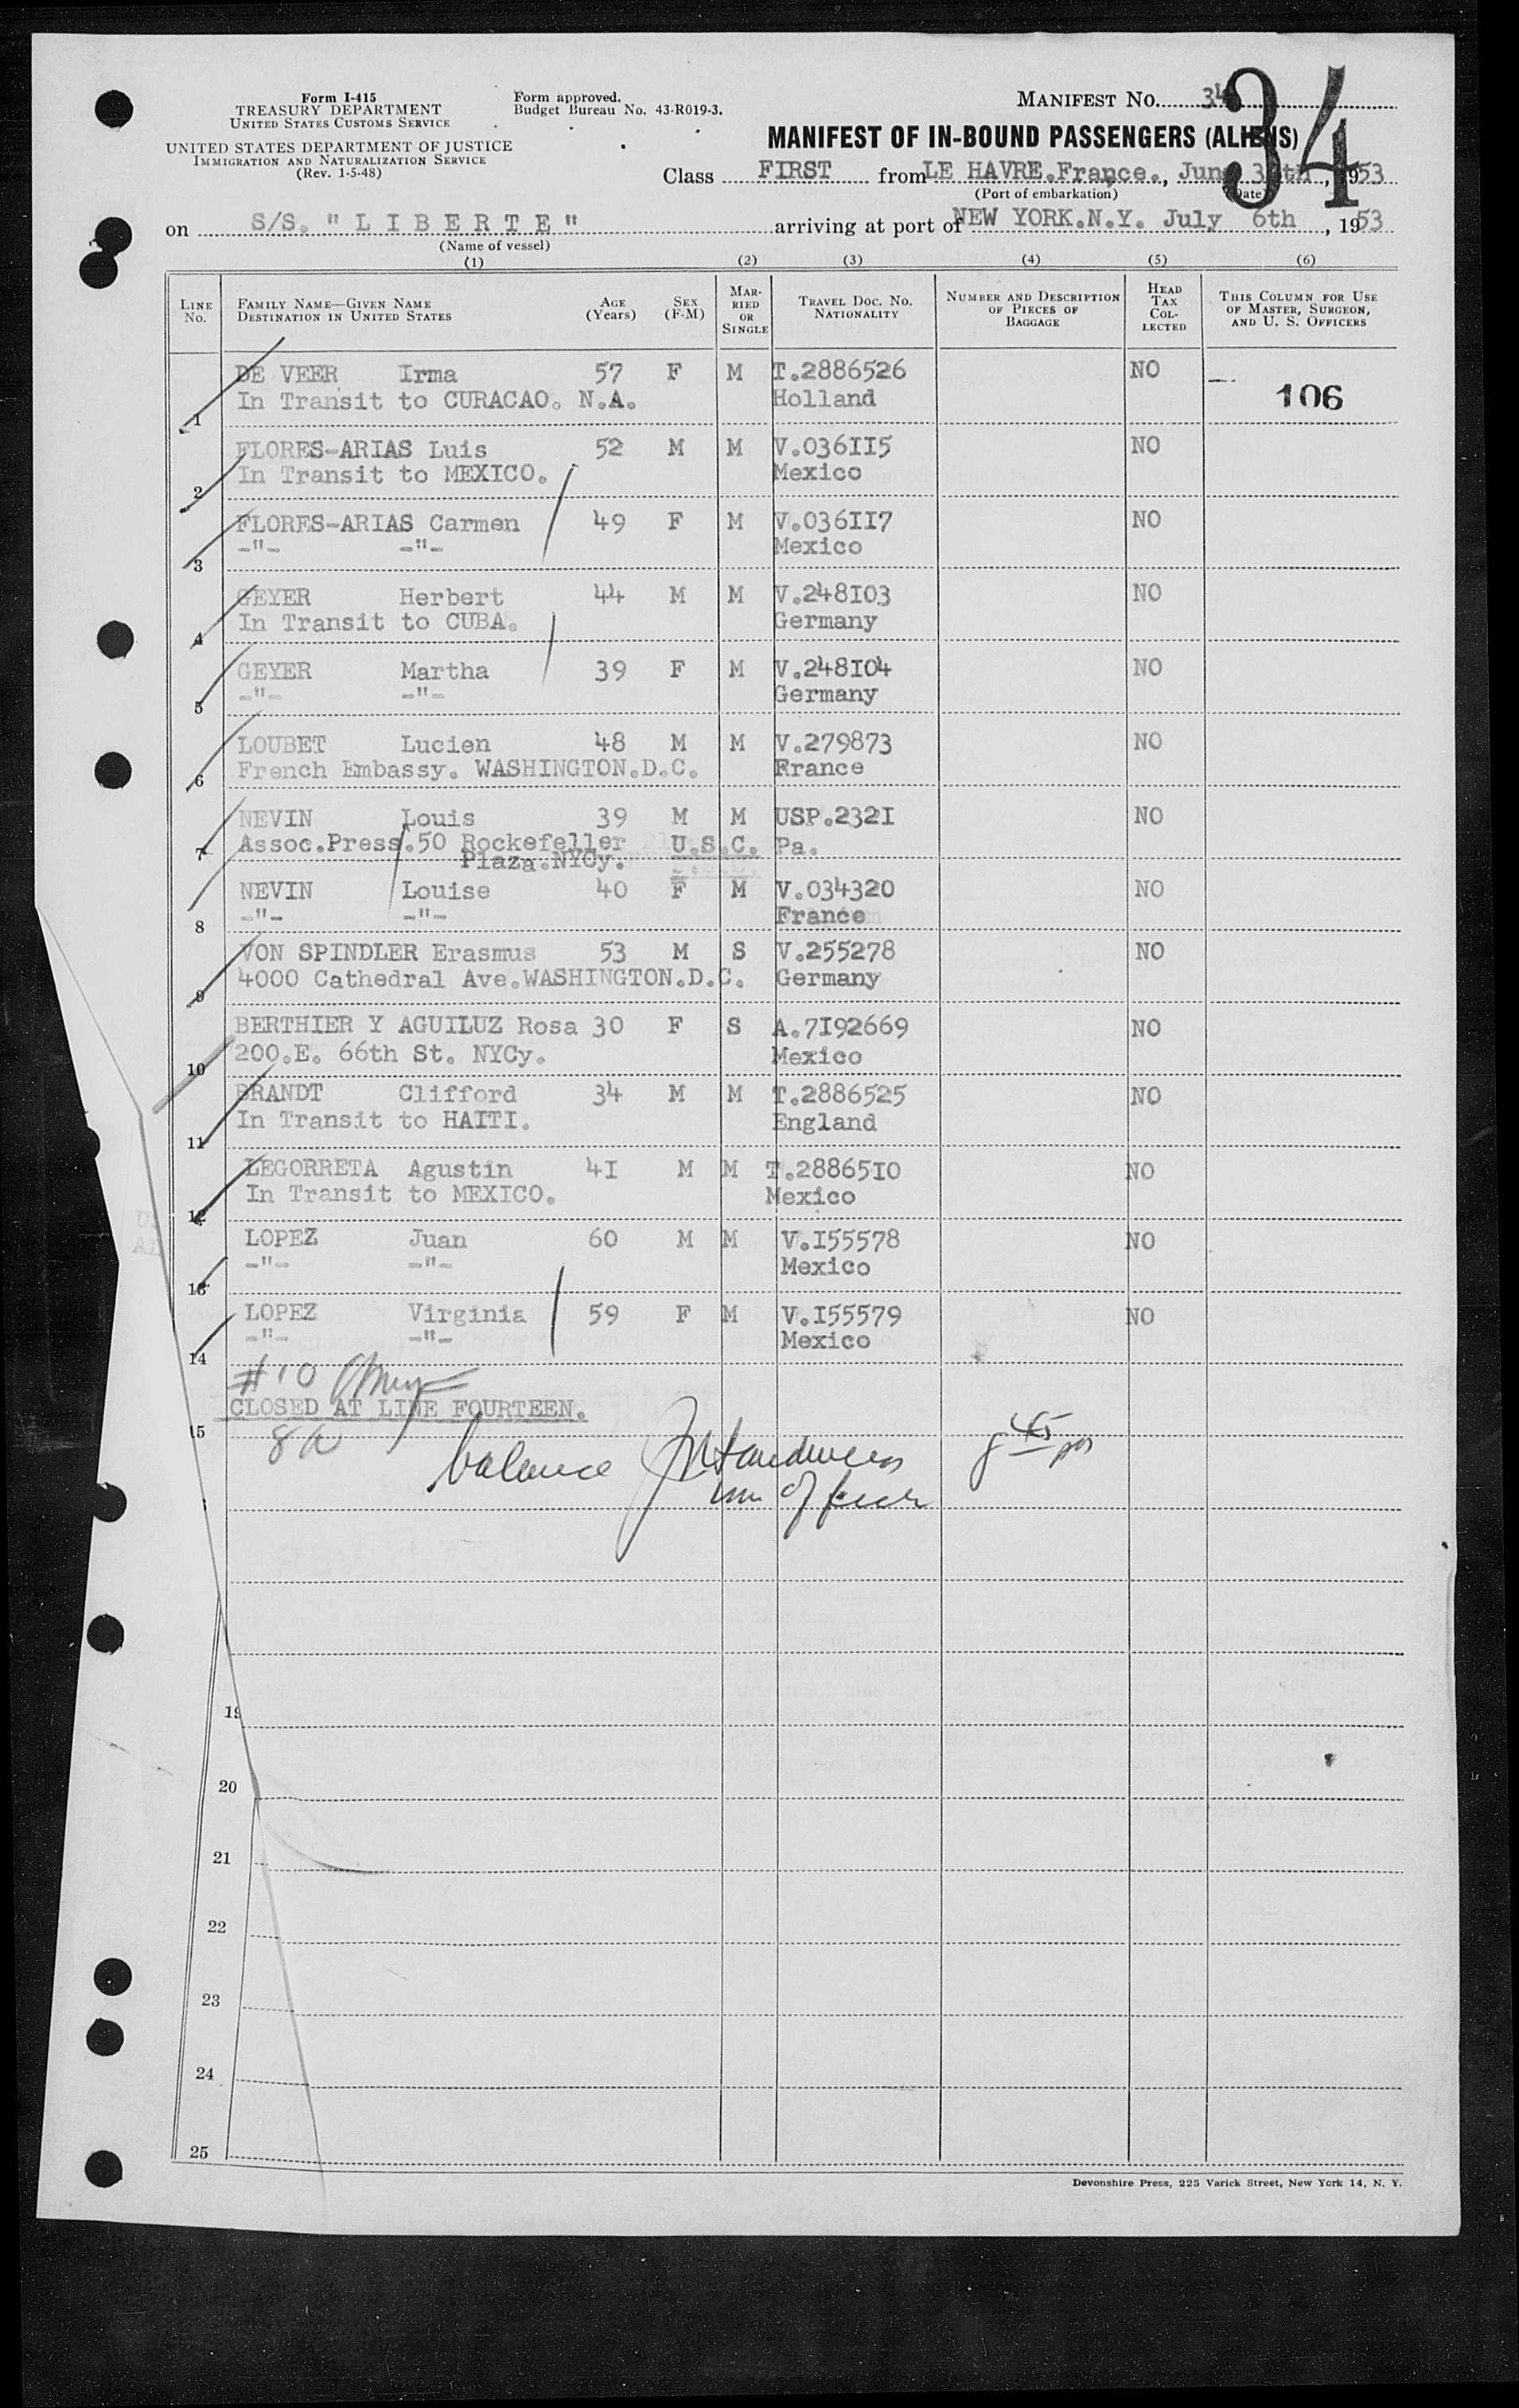 Form I-415
TREASURY DEPARTMENT
UNITED STATES CUSTOMS SERVICE
UNITED STATES DEPARTMENT OF JUSTICE
IMMIGRATION AND NATURALIZATION SERVICE
(Rev. 1-5-48)
Form approved.
Budget Bureau No. 43-R019-3.
MANIFEST NO. 34
34
MANIFEST OF IN-BOUND PASSENGERS (ALIENS)
Class FIRST from LE HAVRE.France., June th, 1953
(Port of embarkation) (Date)
on S/S. "LIBERTE" arriving at port of NEW YORK.N.Y. July 6th, 1953
(Name of vessel)
(1) (2) (3) (4) (5) (6)
LINE NO. FAMILY NAME—GIVEN NAME DESTINATION IN UNITED STATES AGE (Years) SEX (F-M) MARRIED OR SINGLE TRAVEL DOC. NO. NATIONALITY NUMBER AND DESCRIPTION OF PIECES OF BAGGAGE HEAD TAX COLLECTED THIS COLUMN FOR USE OF MASTER, SURGEON, AND U. S. OFFICERS
DE VEER Irma 57 F M T.2886526 NO
1 In Transit to CURACAO. N.A. Holland 106
FLORES-ARIAS Luis 52 M M V.036II5 NO
2 In Transit to MEXICO. Mexico
FLORES-ARIAS Carmen 49 F M V.036II7 NO
3 -"- -"- Mexico
GEYER Herbert 44 M M V.248I03 NO
4 In Transit to CUBA. Germany
GEYER Martha 39 F M V.248I04 NO
5 -"- -"- Germany
LOUBET Lucien 48 M M V.279873 NO
6 French Embassy. WASHINGTON.D.C. France
NEVIN Louis 39 M M USP.232I NO
7 Assoc.Press.50 Rockefeller U.S.C. Pa.
Plaza.NYCy.
NEVIN Louise 40 F M V.034320 NO
8 -"- -"- France
VON SPINDLER Erasmus 53 M S V.255278 NO
9 4000 Cathedral Ave.WASHINGTON.D.C. Germany
BERTHIER Y AGUILUZ Rosa 30 F S A.7I92669 NO
10 200.E. 66th St. NYCy. Mexico
BRANDT Clifford 34 M M T.2886525 NO
11 In Transit to HAITI. England
LEGORRETA Agustin 4I M M T.28865I0 NO
12 In Transit to MEXICO. Mexico
LOPEZ Juan 60 M M V.I55578 NO
13 -"- -"- Mexico
LOPEZ Virginia 59 F M V.I55579 NO
14 -"- -"- Mexico
#10
CLOSED AT LINE FOURTEEN.
15
balance
19
20
21
22
23
24
25
Devonshire Press, 225 Varick Street, New York 14, N. Y.